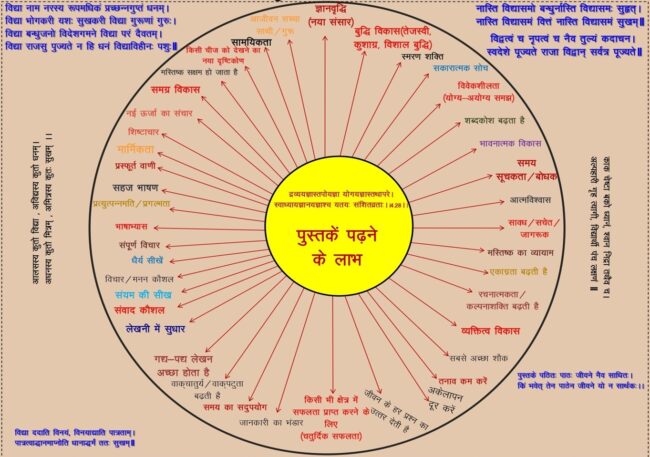 विद्या नाम नरस्य रूपमधिकं प्रच्छन्नगुप्तं धनम्।
विद्या भोगकरी यशः सुखकरी विद्या गुरूणां गुरुः।
विद्या बन्धुजनो विदेशगमने विद्या परं दैवतम्।
विद्या राजसु पुज्यते न हि धनं विद्याविहीनः पशुः॥
नास्ति विद्यासमो बन्धुर्नास्ति विद्यासमः सुहृत्।
नास्ति विद्यासमं वित्तं नास्ति विद्यासमं सुखम्॥
विद्वत्वं च नृपत्वं च नैव तुल्यं कदाचन।
स्वदेशे पूज्यते राजा विद्वान् सर्वत्र पूज्यते॥
आजीवन सच्चा
साथी/गुरू
ज्ञानवृद्धि
(नया संसार)
बुद्धि विकास(तेजस्वी,
कुशाग्र, विशाल बुद्धि)
स्मरण शक्ति
सकारात्मक सोच
विवेकशीलता
(योग्य–अयोग्य समझ)
शब्दकोश बढ़ता है
भावनात्मक विकास
समय
सूचकता/बोधक
आत्मविश्वास
सावध/सचेत/
जागरूक
मस्तिष्क का व्यायाम
एकाग्रता बढ़ती है
रचनात्मकता/
कल्पनाशक्ति बढ़ती है
व्यक्तित्व विकास
सबसे अच्छा शौक
तनाव कम करें
अकेलापन
दूर करें
जीवन के हर प्रश्न का
उत्तर देती है
किसी भी क्षेत्र में
सफलता प्राप्त करने के
लिए
(चतुर्दिक सफलता)
जानकारी का भंडार
समय का सदुपयोग
वाक्चातुर्य/वाक्पटुता
बढ़ती है
गद्य–पद्य लेखन
अच्छा होता है
लेखनी में सुधार
संवाद कौशल
संयम की सीख
विचार/मनन कौशल
धैर्य सीखें
संपूर्ण विचार
भाषाभ्यास
प्रत्युत्पन्नमति/प्रगल्भता
सहज भाषण
प्रस्फूर्त वाणी
मार्मिकता
शिष्टाचार
नई ऊर्जा का संचार
समग्र विकास
मस्तिष्क सक्षम हो जाता है
किसी चीज को देखने का
नया दृष्टिकोण
सामयिकता
द्रव्ययज्ञास्तपोयज्ञा योगयज्ञास्तथापरे।
स्वाध्यायज्ञानयज्ञाश्च यतयः संशितव्रताः।।4.28।।
पुस्तकें पढ़ने
के लाभ
आलसस्य कुतो विद्या, अविद्यस्य कुतो धनम्।
अधनस्य कुतो मित्रम्, अमित्रस्य कुतः सुखम् ।।
काक चेष्टा बको ध्यानं, स्वान निद्रा तथैव च।
अल्पहारी गृह त्यागी, विद्यार्थी पंच लक्षणं ॥
विद्या ददाति विनयं, विनयाद्याति पात्रताम्।
पात्रत्वाद्धानमाप्नोति धानाद्धर्मं ततः सुखम्॥
पुस्तके पठितः पाठः जीवने नैव साधितः।
किं भवेत् तेन पाठेन जीवने यो न सार्थकः।।